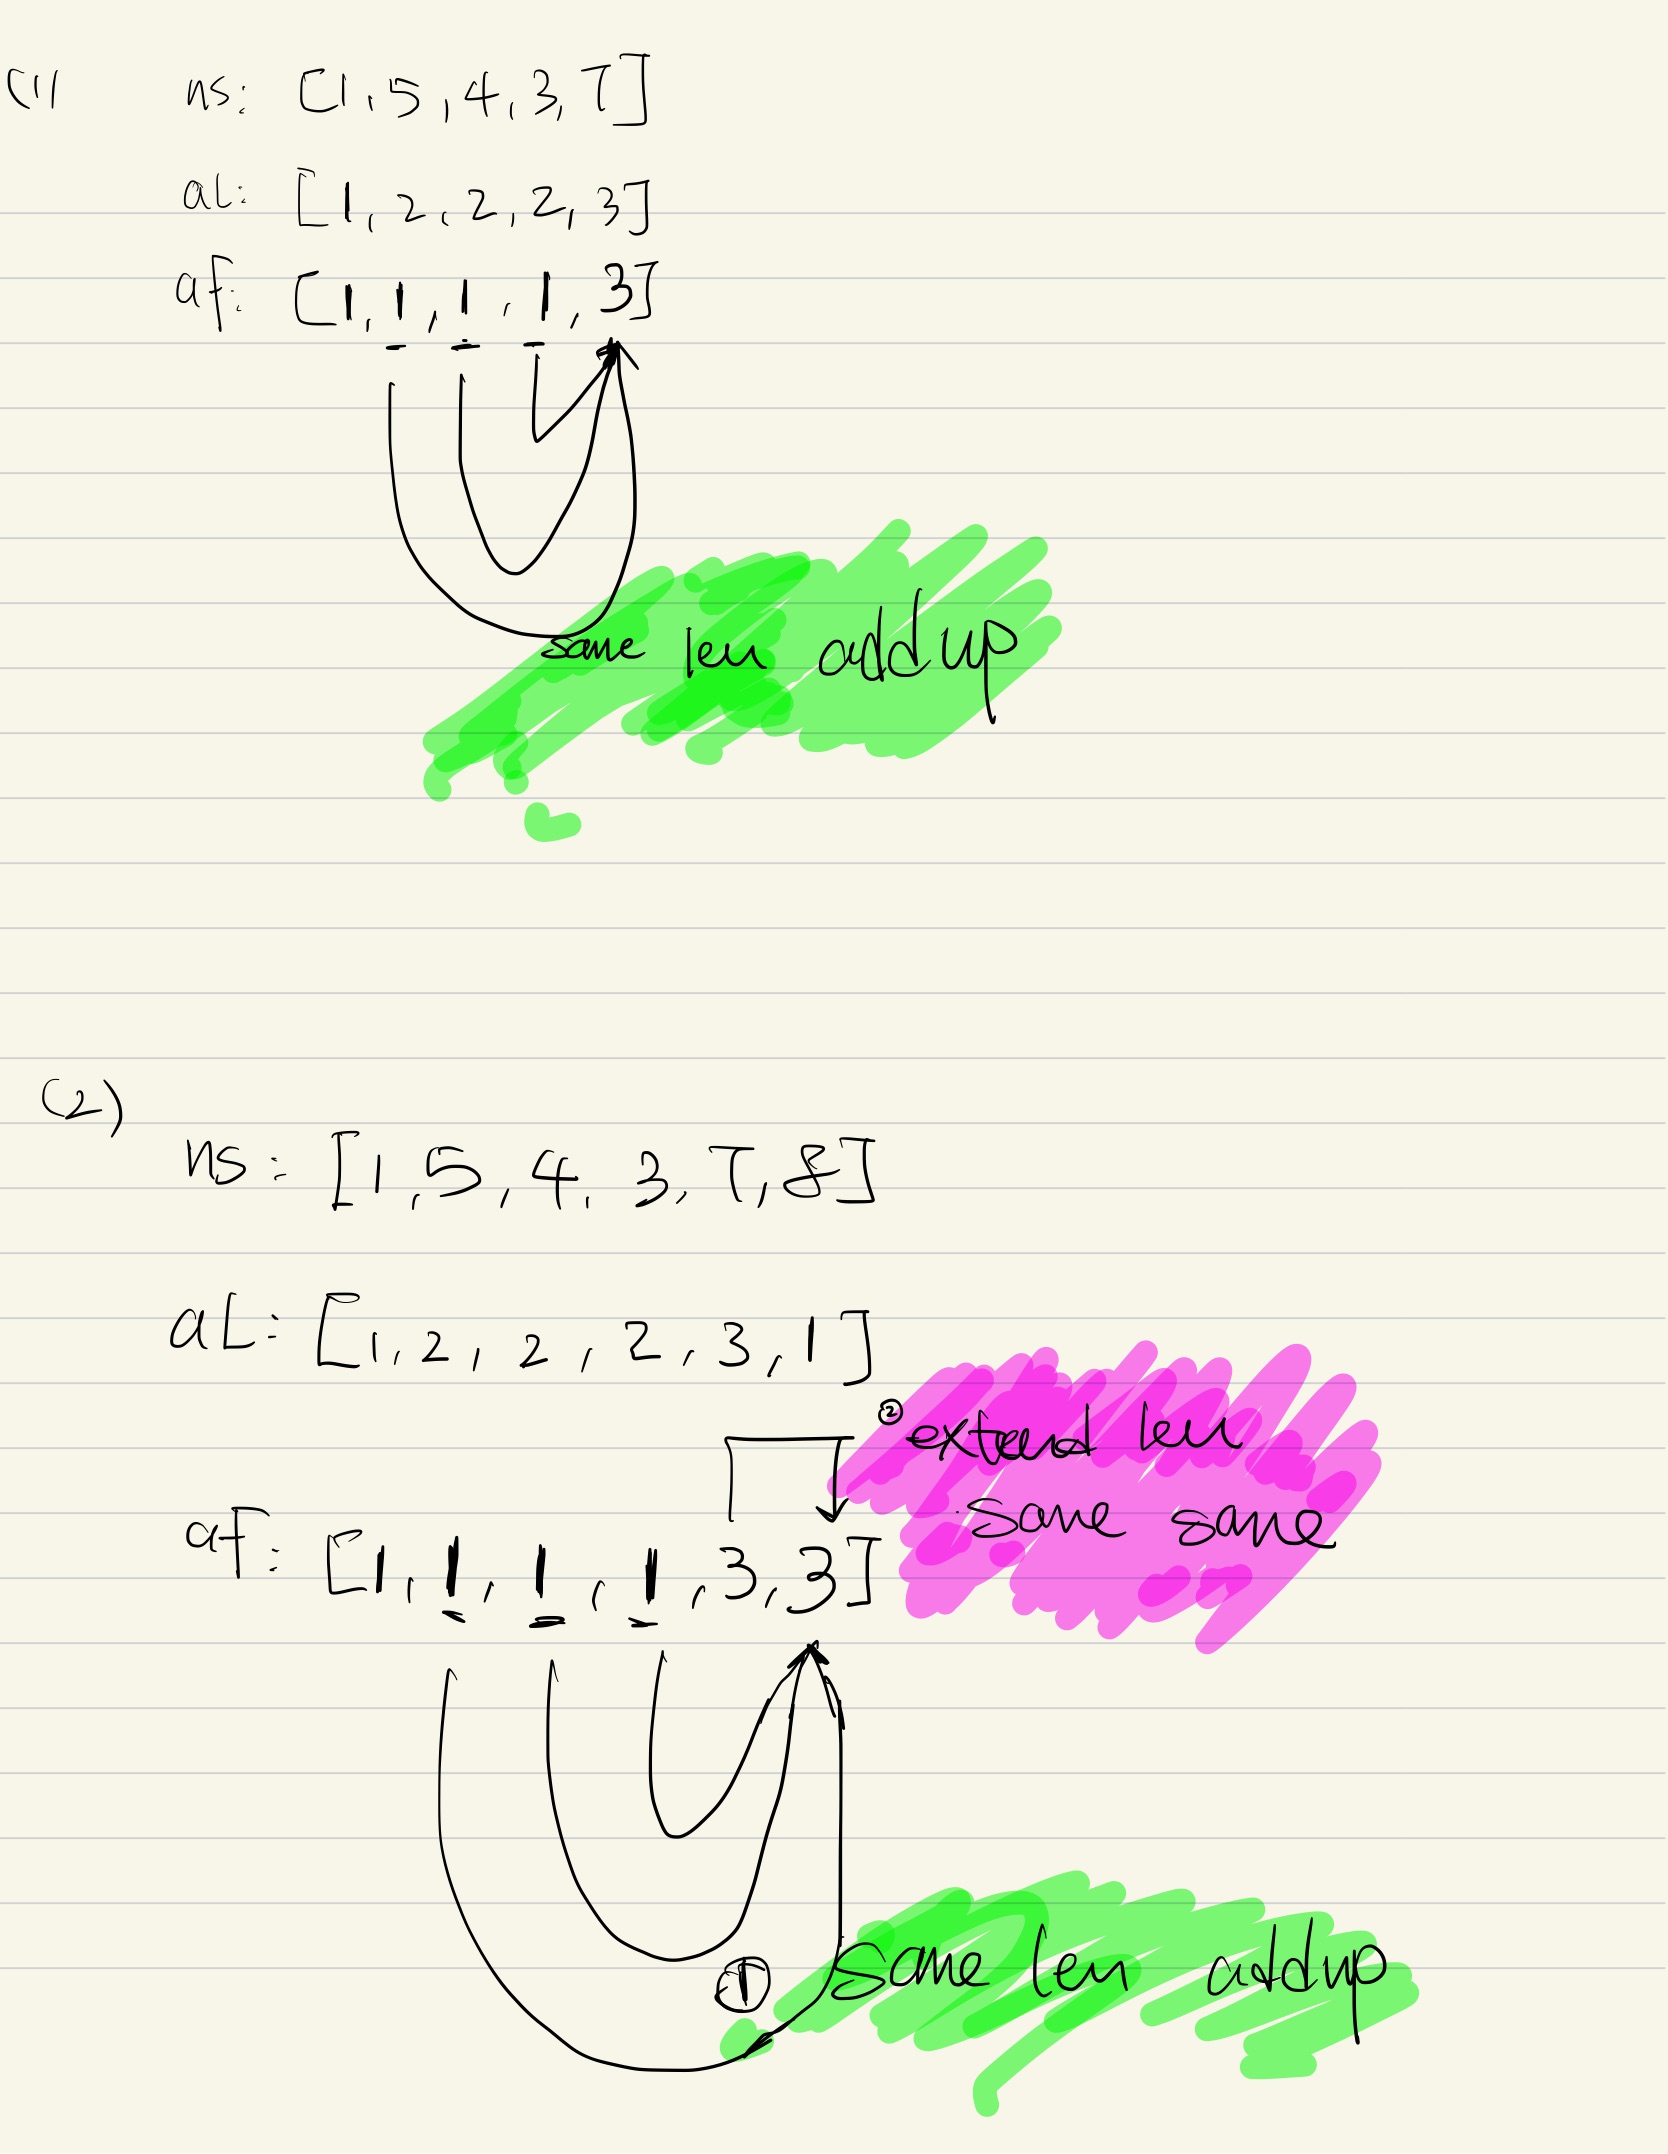 (1)
ns: [1,5,4,3,7]
aL: [1,2,2,2,3]
af: [1,1,1,1,3]
same len add up
(2)
ns: [1,5,4,3,7,8]
aL: [1,2,2,2,3,1]
② extend len
same same
af: [1,1,1,1,3,3]
① same len add up